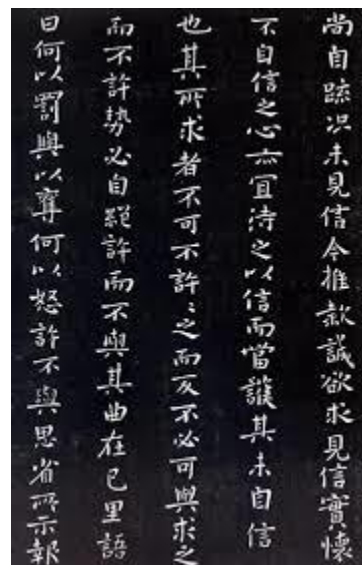 尚自疏况未見信今推款誠欲求見信實懷
不自信之心亦宜待之以信而當護其未自信
也其所求者不可不許許之而反不必可與求之
而不許勢必自絕許而不與其曲在己里語
曰何以罰與以奪何以怒許不與思省所示報